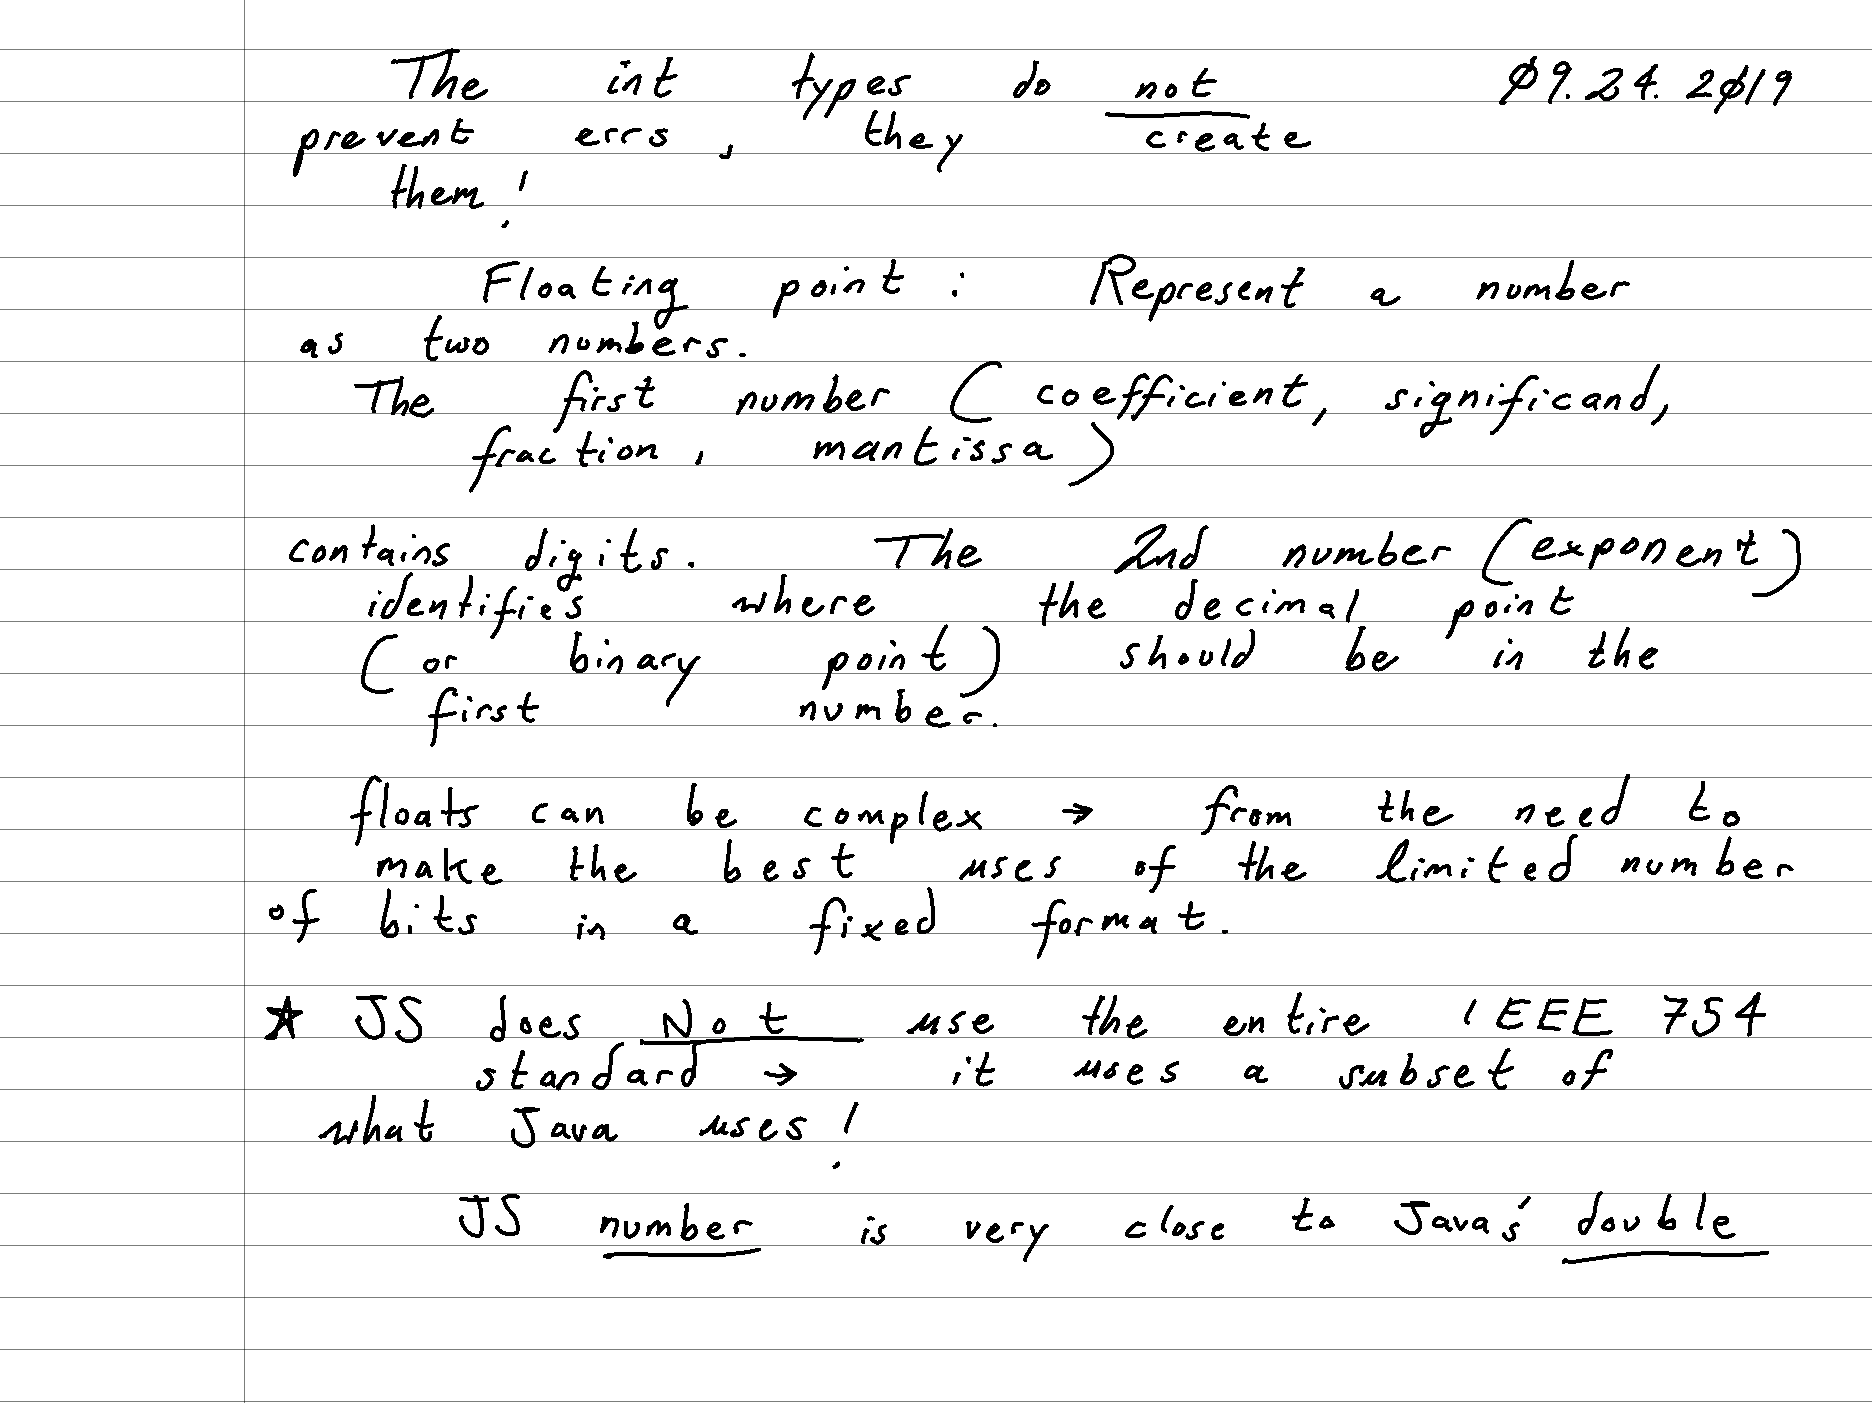 The int types do not Ø9.24.2Ø19
prevent errs, they create
them!
Floating point: Represent a number
as two numbers.
The first number (coefficient, significand,
fraction, mantissa)
contains digits. The 2nd number (exponent)
identifies where the decimal point
(or binary point) should be in the
first number.
floats can be complex → from the need to
make the best uses of the limited number
of bits in a fixed format.
★ JS does Not use the entire IEEE 754
standard → it uses a subset of
what Java uses!
JS number is very close to Java's double